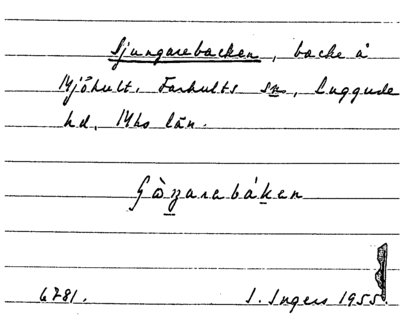 Sjungarebacken, backe å
Mjöhult. Farhults sn, Luggude
hd, Mhs län.
Gȯŋarebáken
6781. I. Ingers 1955.